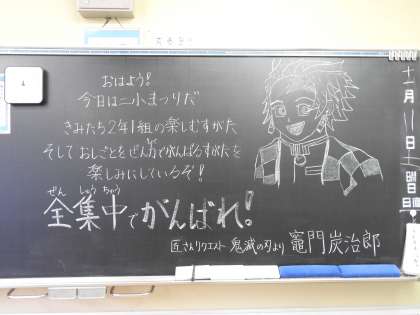 おはよう!
今日は二小まつりだ
きみたち2年1組の楽しむすがた
そして おしごとをぜん力でがんばるすがたを
楽しみにしているぞ!
ぜん しゅう ちゅう
全集中でがんばれ!
匠さんリクエスト 鬼滅の刃より 竈門炭治郎
十一月二日土曜日